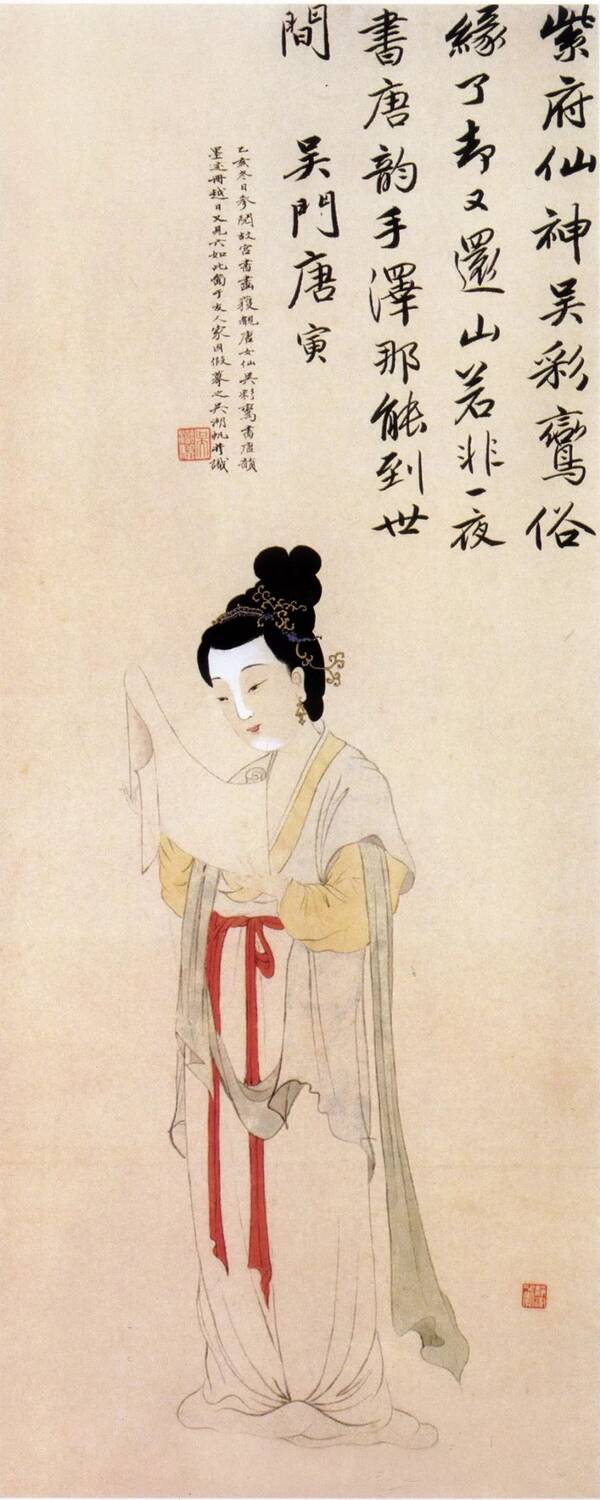 紫府仙神吴彩鸞俗
緣了却又還山若非一夜
書唐韵手澤那能到世
間 吴門唐寅
乙亥冬日參閱故宫書畫獲觀唐女仙吴彩鸞書唐韻
墨迹冊越日又見六如此圖于友人家因假摹之吴湖帆并識